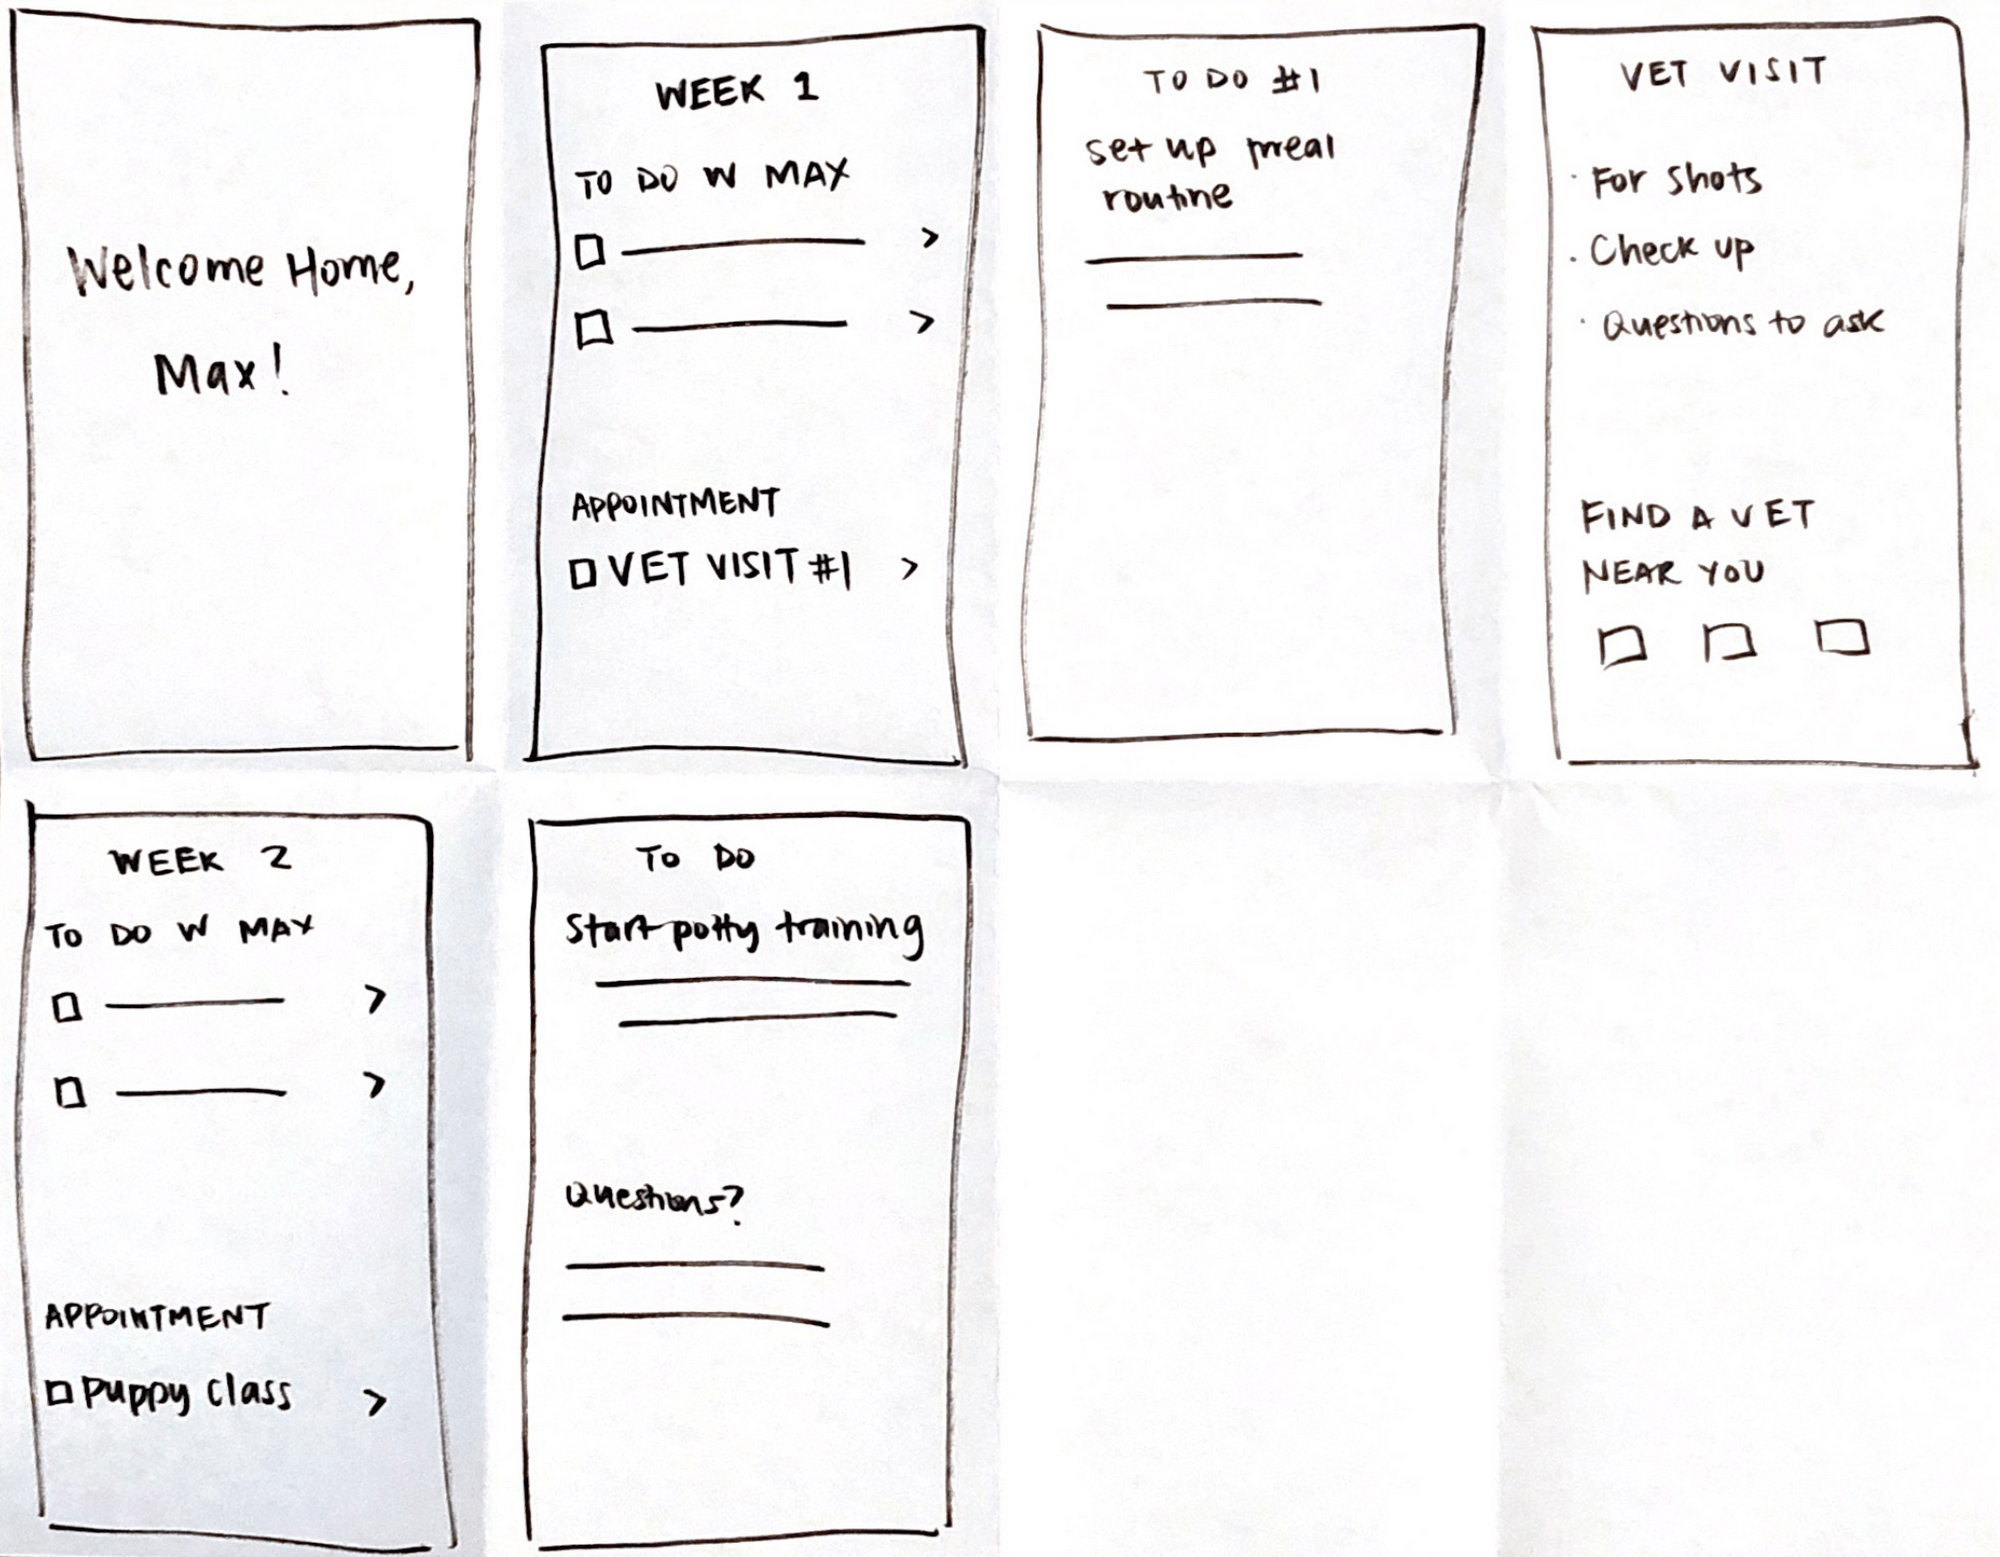 Welcome Home,
Max!
WEEK 1
TO DO W MAX
>
>
APPOINTMENT
VET VISIT #1 >
TO DO #1
set up meal
routine
VET VISIT
· For shots
· Check up
· Questions to ask
FIND A VET
NEAR YOU
WEEK 2
TO DO W MAX
>
>
APPOINTMENT
puppy class >
TO DO
Start potty training
Questions?